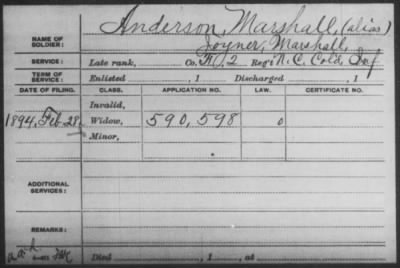 NAME OF SOLDIER: Anderson, Marshall, (alias)
Joyner, Marshall,
SERVICE: Late rank, Co. K, 2 Reg't N.C. Cold. Inf
TERM OF SERVICE: Enlisted , 1 Discharged , 1
DATE OF FILING. CLASS. APPLICATION NO. LAW. CERTIFICATE NO.
Invalid,
1894, Feb. 28, Widow, 590,598 0
Minor,
ADDITIONAL SERVICES:
REMARKS:
Died , 1 , at